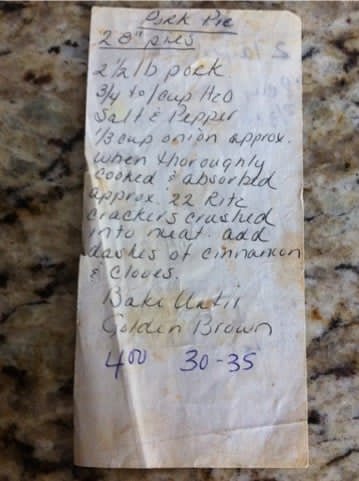 Pork Pie
2 8" pies
2 1/2 lb pork
3/4 to 1 cup H2O
Salt & Pepper
1/3 cup onion approx.
when thoroughly
cooked & absorbed
approx. 22 Ritz
crackers crushed
into meat. add
dashes of cinnamon
& cloves.
Bake Until
Golden Brown
400 30-35